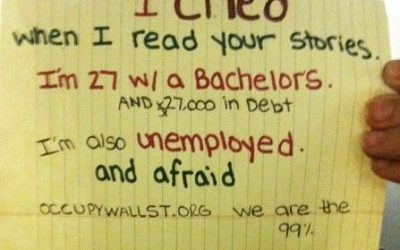 I cried
when I read your stories.
I'm 27 w/ a Bachelors.
AND $27,000 in Debt
I'm also unemployed.
and afraid
OCCUPYWALLST.ORG we are the
99%